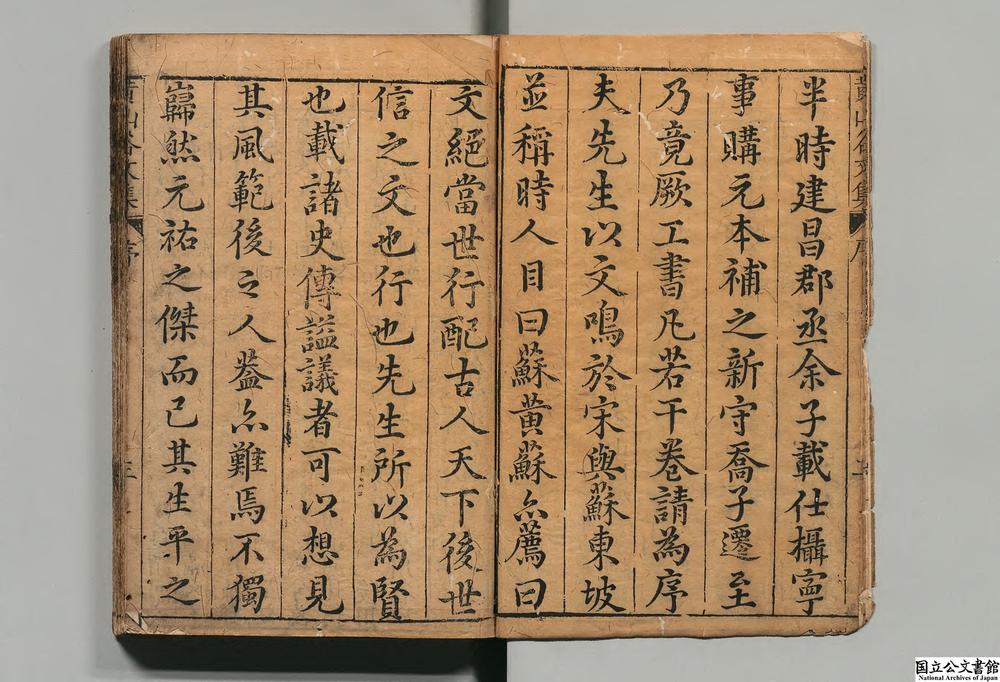 半時建昌郡丞余子載仕攝寧
事購元本補之新守喬子遷至
乃竟厥工書凡若干卷請為序
夫先生以文鳴於宋與蘇東坡
並稱時人目曰蘇黄蘇亦薦曰
文絕當世行配古人天下後世
信之文也行也先生所以為賢
也載諸史傳謚議者可以想見
其風範後之人蓋亦難焉不獨
巋然元祐之傑而已其生平之
黄山谷文集
序
国立公文書館
National Archives of Japan